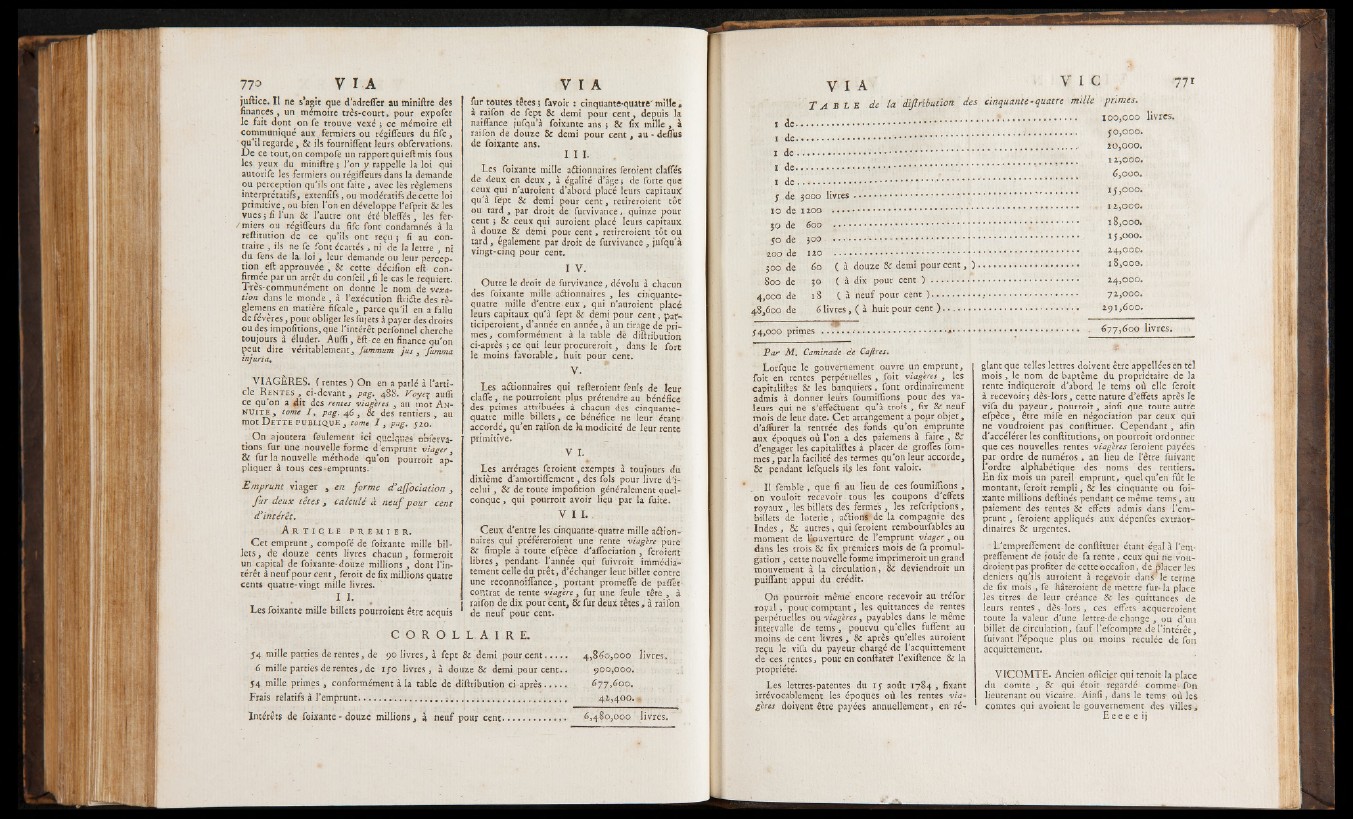 770 VIA
juſtice. Il ne s'agit que d'adreſſer au miniſtre des
finances, un mémoire très-court, pour expoſer
le fait dont on ſe trouve vexé ; ce mémoire eſt
communiqué aux fermiers ou régiſſeurs du fiſc,
qu'il regarde, & ils fourniſſent leurs obſervations.
De ce tout, on compoſe un rapport qui eſt mis ſous
les yeux du miniſtre ; l'on y rappelle la loi qui
autoriſe les fermiers ou régiſſeurs dans la demande
ou perception qu'ils ont faite, avec les règlemens
interprétatifs, extenſifs, ou modératifs de cette loi
primitive, ou bien l'on en développe l'eſprit & les
vues ; ſi l'un & l'autre ont été bleſſés, les fer-
miers ou régiſſeurs du fiſc ſont condamnés à la
reſtitution de ce qu'ils ont reçu ; ſi au con-
traire, ils ne ſe ſont écartés, ni de la lettre, ni
du ſens de la loi, leur demande ou leur percep-
tion eſt approuvée, & cette déciſion eſt con-
firmée par un arrêt du conſeil, ſi le cas le requiert.
Très-communément on donne le nom de vexa-
tion dans le monde, à l'exécution ſtricte des rè-
glemens en matière fiſcale, parce qu'il en a fallu
de ſévères, pour obliger les ſujets à payer des droits
ou des impoſitions, que l'intérêt perſonnel cherche
toujours à éluder. Auſſi, eſt-ce en finance qu'on
peut dire véritablement, ſummum jus, ſumma
injuria.
VIAGÈRES. (rentes) On en a parlé à l'arti-
cle RENTES, ci-devant, pag. 488. Voyez auſſi
ce qu'on a dit des rentes viagères, au mot AN-
NUITE, tome I, pag. 46, & des rentiers, au
mot DETTE PUBLIQUE, tome I, pag. 520.
On ajoutera ſeulement ici quelques obſerva-
tions ſur une nouvelle forme d'emprunt viager,
& ſur la nouvelle méthode qu'on pourroit ap-
pliquer à tous ces emprunts.
Emprunt viager, en forme d'aſſociation,
ſur deux têtes, calculé à neuf pour cent
d'intérêt.
ARTICLE PREMIER.
Cet emprunt, compoſé de ſoixante mille bil-
lets, de douze cents livres chacun, formeroit
un capital de ſoixante-douze millions, dont l'in-
térêt à neuf pour cent, ſeroit de ſix millions quatre
cents quatre-vingt mille livres.
II.
Les ſoixante mille billets pourroient être acquis
VIA
ſur toutes têtes ; ſavoir : cinquante-quatre mille,
à raiſon de ſept & demi pour cent, depuis la
naiſſance juſqu'à ſoixante ans ; & ſix mille, à
raiſon de douze & demi pour cent, au-deſſus
de ſoixante ans.
III.
Les ſoixante mille actionnaires ſeroient claſſés
de deux en deux, à égalité d'âge ; de ſorte que
ceux qui n'auroient d'abord placé leurs capitaux
qu'à ſept & demi pour cent, retireroient tôt
ou tard, par droit de ſurvivance, quinze pour
cent ; & ceux qui auroient placé leurs capitaux
à douze & demi pour cent, retireroient tôt ou
tard, également par droit de ſurvivance, juſqu'à
vingt-cinq pour cent.
IV.
Outre le droit de ſurvivance, dévolu à chacun
des ſoixante mille actionnaires, les cinquante-
quatre mille d'entre eux, qui n'auroient placé
leurs capitaux qu'à ſept & demi pour cent, par-
ticiperoient, d'année en année, à un tirage de pri-
mes, conformément à la table de diſtribution
ci-après ; ce qui leur procureroit, dans le ſort
le moins favorable, huit pour cent.
V.
Les actionnaires qui reſteroient ſeuls de leur
claſſe, ne pourroient plus prétendre au bénéfice
des primes attribuées à chacun des cinquante-
quatre mille billets, ce bénéfice ne leur étant
accordé, qu'en raiſon de la modicité de leur rente
primitive.
VI.
Les arrérages ſeroient exempts à toujours du
dixième d'amortiſſement, des ſols pour livre d'i-
celui, & de toute impoſition généralement quel-
conque, qui pourroit avoir lieu par la ſuite.
VII.
Ceux d'entre les cinquante-quatre mille action-
naires qui préféreroient une rente viagère pure
& ſimple à toute eſpèce d'aſſociation, ſeroient
libres, pendant l'année qui ſuivroit immédia-
tement celle du prêt, d'échanger leur billet contre
une reconnoiſſance, portant promeſſe de paſſer
contrat de rente viagère, ſur une ſeule tête, à
raiſon de dix pour cent, & ſur deux têtes, à raiſon
de neuf pour cent.
COROLLAIRE.
54 mille parties de rentes, de 90 livres, à ſept & demi pour cent..... 4,860,000 livres.
6 mille parties de rentes, de 150 livres, à douze & demi pour cent.. 900,000.
54 mille primes, conformément à la table de diſtribution ci après..... 677,600.
Frais relatifs à l'emprunt............ 42,400.
Intérêts de ſoixante-douze millions, à neuf pour cent............ 6,480,000 livres.
VIA VIC 771
TABLE de la diſtribution des cinquante-quatre mille primes.
1 de............ 100,000 livres.
1 de............ 50,000.
1 de............ 20,000.
1 de............ 12,000.
1 de............ 6,000.
5 de 3000 livres............ 15,000.
10 de 1200............ 12,000.
30 de 600............ 18,000.
50 de 300............ 15,000.
200 de 120............ 24,000.
300 de 60 (à douze & demi pour cent,)............ 18,000.
800 de 30 (à dix pour cent)............ 24,000.
4,000 de 18 (à neuf pour cent)............ 72,000.
48,600 de 6 livres, (à huit pour cent)............ 291,600.
54,000 primes............ 677,600 livres.
Par M. Caminade de Caſtres.
Lorſque le gouvernement ouvre un emprunt,
ſoit en rentes perpétuelles, ſoit viagères, les
capitaliſtes & les banquiers, ſont ordinairement
admis à donner leurs ſoumiſſions pour des va-
leurs qui ne s'effectuent qu'à trois, ſix & neuf
mois de leur date. Cet arrangement a pour objet,
d'aſſurer la rentrée des fonds qu'on emprunte
aux époques où l'on a des paiemens à faire, &
d'engager les capitaliſtes à placer de groſſes ſom-
mes, par la facilité des termes qu'on leur accorde,
& pendant leſquels ils les font valoir.
Il ſemble, que ſi au lieu de ces ſoumiſſions,
on vouloit recevoir tous les coupons d'effets
royaux, les billets des fermes, les reſcriptions,
billets de loterie, actions de la compagnie des
Indes, & autres, qui ſeroient rembourſables au
moment de l'ouverture de l'emprunt viager, ou
dans les trois & ſix premiers mois de ſa promul-
gation, cette nouvelle forme imprimeroit un grand
mouvement à la circulation, & deviendroit un
puiſſant appui du crédit.
On pourroit même encore recevoir au tréſor
royal, pour comptant, les quittances de rentes
perpétuelles ou viagères, payables dans le même
intervalle de tems, pourvu qu'elles fuſſent au
moins de cent livres, & après qu'elles auroient
reçu le viſa du payeur chargé de l'acquittement
de ces rentes, pour en conſtater l'exiſtence & la
propriété.
Les lettres-patentes du 15 août 1784, fixant
irrévocablement les époques où les rentes via-
gères doivent être payées annuellement, en ré-
glant que telles lettres doivent être appellées en tel
mois, le nom de baptême du propriétaire de la
rente indiqueroit d'abord le tems où elle ſeroit
à recevoir ; dès-lors, cette nature d'effets après le
viſa du payeur, pourroit, ainſi que toute autre
eſpèce, être miſe en négociation par ceux qui
ne voudroient pas conſtituer. Cependant, afin
d'accélérer les conſtitutions, on pourroit ordonner
que ces nouvelles rentes viagères ſeroient payées
par ordre de numéros, au lieu de l'être ſuivant
l'ordre alphabétique des noms des rentiers.
En ſix mois un pareil emprunt, quel qu'en fût le
montant, ſeroit rempli, & les cinquante ou ſoi-
xante millions deſtinés pendant ce même tems, au
paiement des rentes & effets admis dans l'em-
prunt, ſeroient appliqués aux dépenſes extraor-
dinaires & urgentes.
L'empreſſement de conſtituer étant égal à l'em-
preſſement de jouir de ſa rente, ceux qui ne vou-
droient pas profiter de cette occaſion, de placer les
deniers qu'ils auroient à recevoir dans le terme
de ſix mois, ſe hâteroient de mettre ſur-la place
les titres de leur créance & les quittances de
leurs rentes, dès lors, ces effets acquerroient
toute la valeur d'une lettre-de change, ou d'un
billet de circulation, ſauf l'eſcompte de l'intérêt,
ſuivant l'époque plus ou moins reculée de ſon
acquittement.
VICOMTE. Ancien officier qui tenoit la place
du comte, & qui étoit regardé comme ſon
lieutenant ou vicaire. Ainſi, dans le tems où les
comtes qui avoient le gouvernement des villes,
Eeeee ij